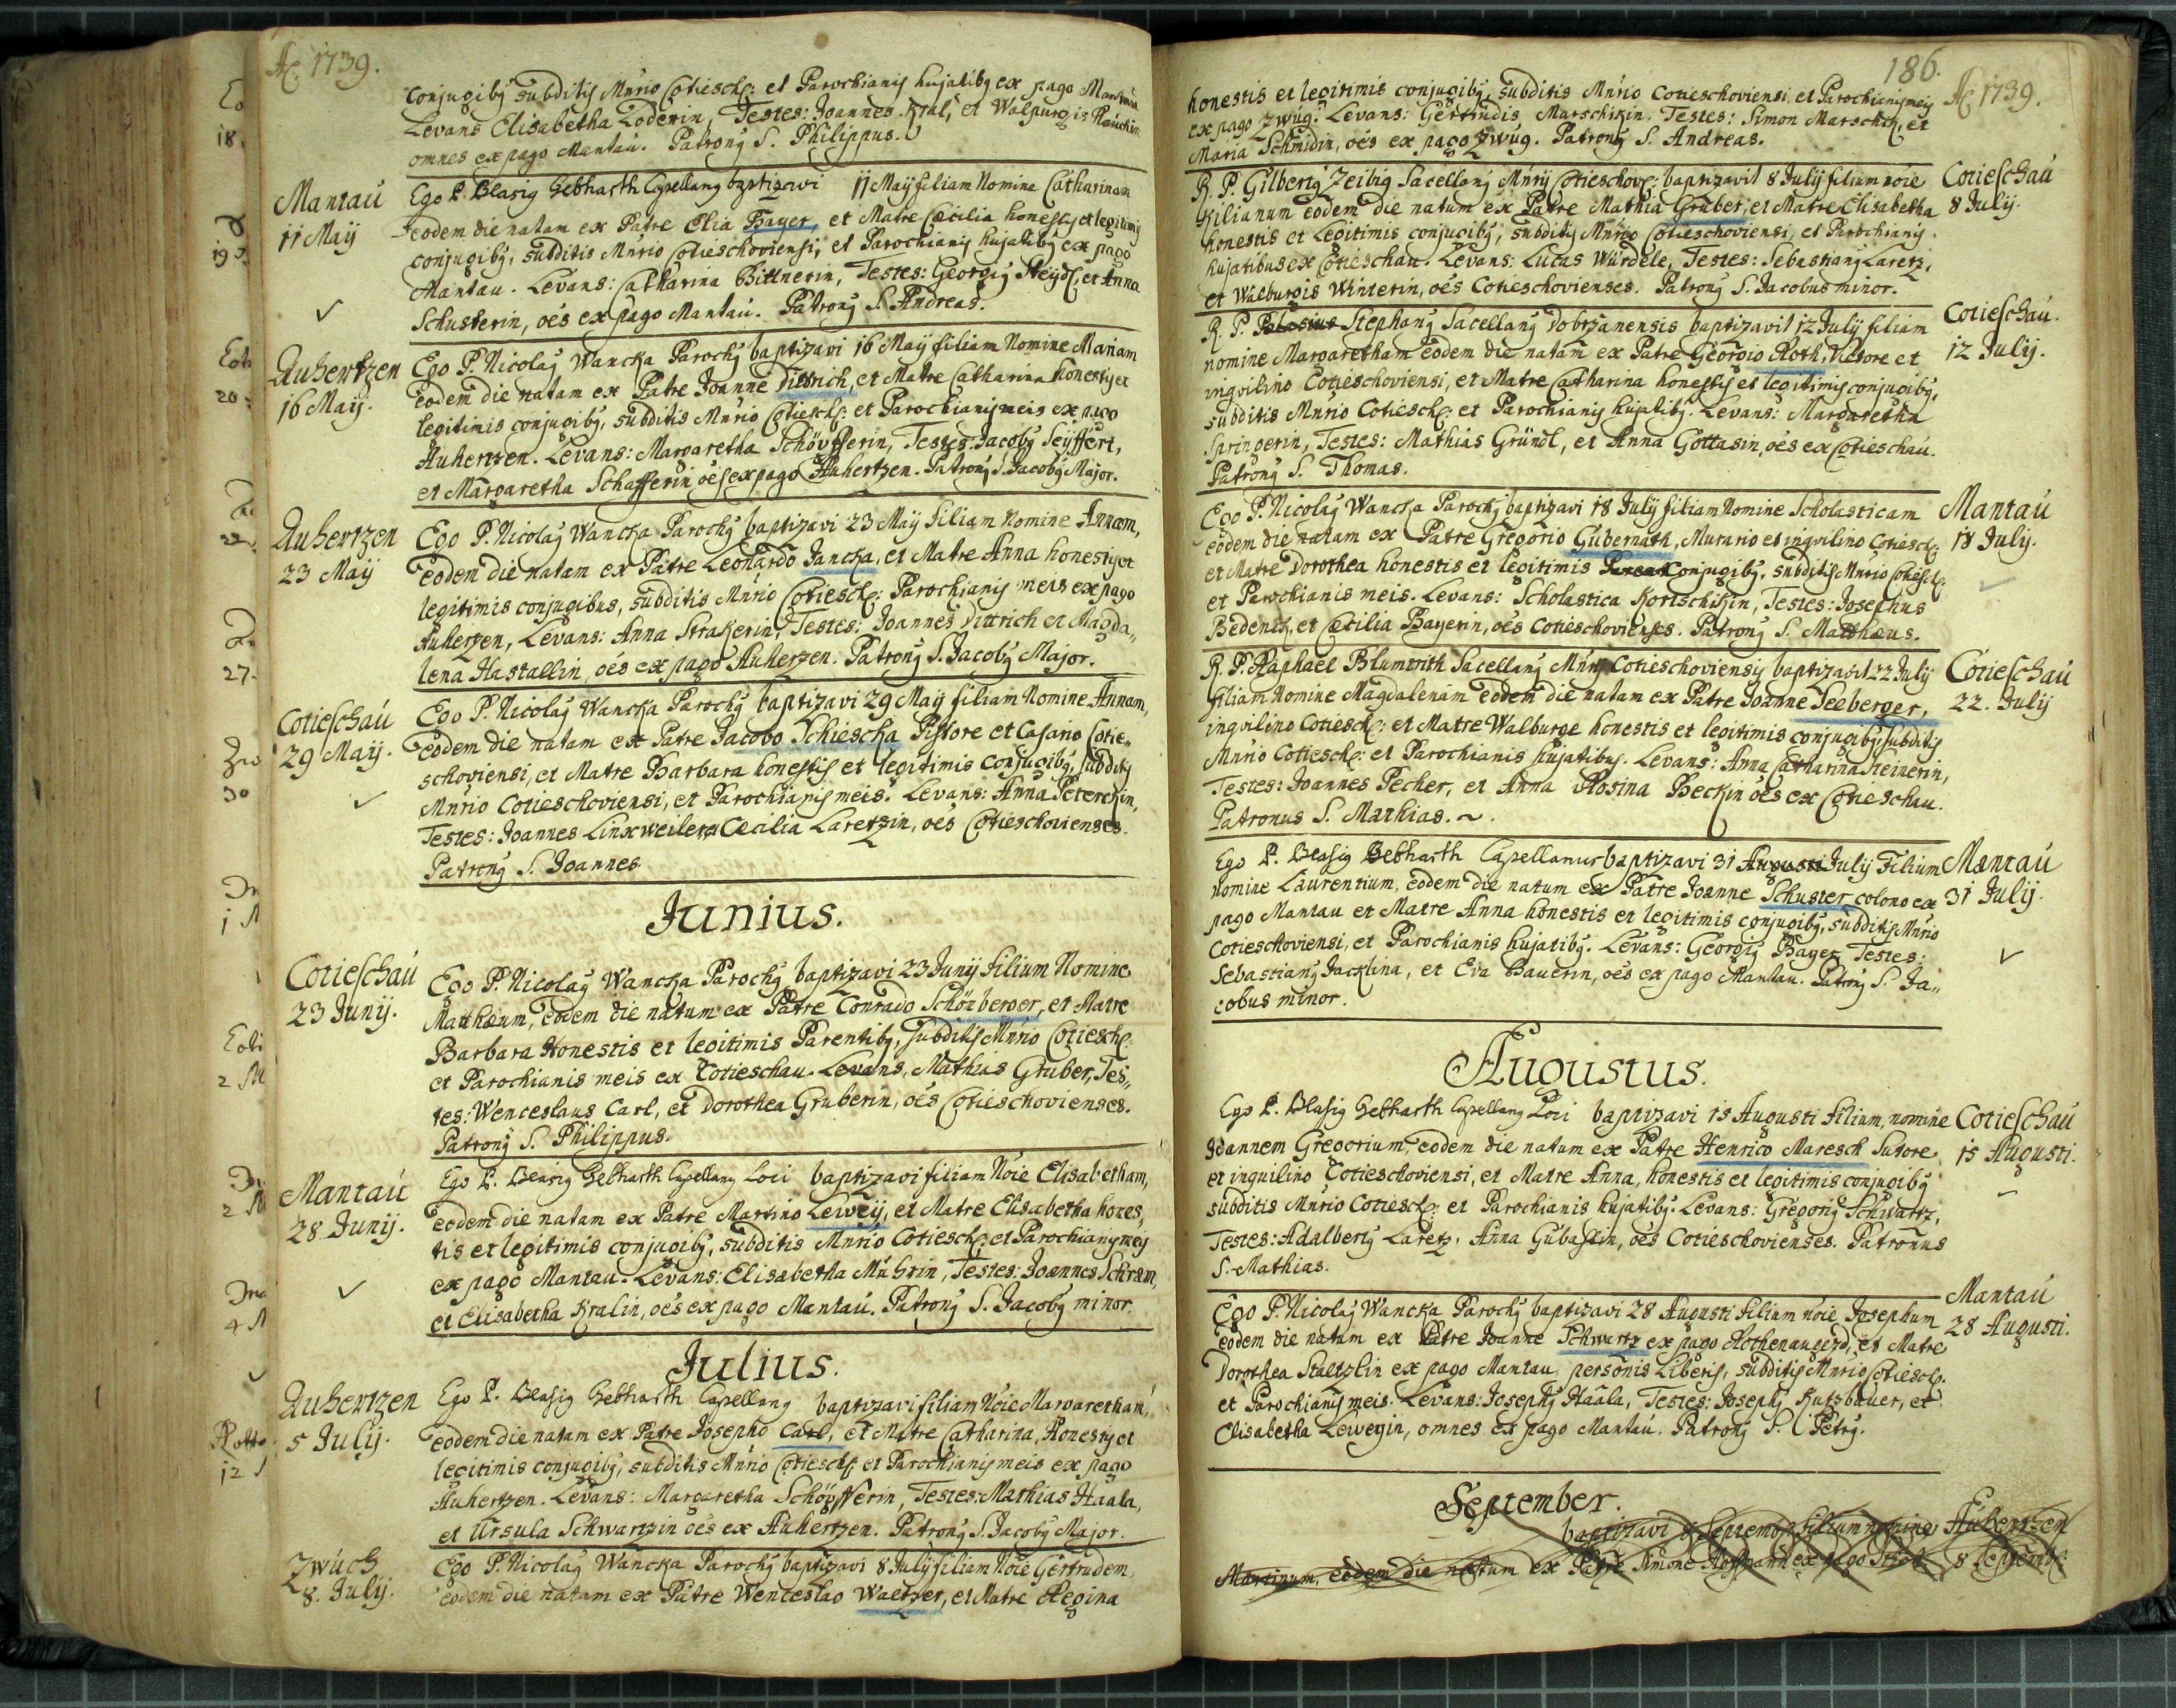 Aõ 1739.
conjugibq subditis Mñrio Cotiesch: et Parochianis hujatibq ex pago Mantau
Levans Elisabetha Loderin, Testes: Joannes Kral, et Walpurgis
omnes ex pago Mantau. Patronq S. Philippus.
Mantau
11 Maij
Ego P. Blasiq Gebharth Capellanq baptizavi 11 Maij filiam Nomine Catharinam
eodem die natam ex Patre Elia Bayer, et Matre Cæcilia honestis et legitimis
conjugibq, subditis Mñrio Cotieschoviensi, et Parochianis hujatibq ex pago
Mantau. Levans: Catharina Bittnerin, Testes: Georgiq Steydl, et Anna
Schusterin, oẽs ex pago Mantau. Patronq S. Andreas.
Auhertzen
16 Maij.
Ego P. Nicolaq Wancka Parochq baptizavi 16 Maij filiam Nomine Mariam
eodem die natam ex Patre Joanne Dittrich, et Matre Catharina honestis et
legitimis conjugibq, subditis Mñrio Cotiesch: et Parochianis meis ex pago
Auhertzen. Levans: Margaretha Schöpfferin, Testes: Jacobq Seyffert,
et Margaretha Schafferin oẽs ex pago Auhertzen. Patronq S. Jacobq Major.
Auhertzen
23 Maij
Ego P. Nicolaq Wancka Parochq baptizavi 23 Maij filiam Nomine Annam,
eodem die natam ex Patre Leonardo Jancka, et Matre Anna honestis et
legitimis conjugibus, subditis Mñrio Cotiesch: Parochianis meis ex pago
Auhertzen, Levans: Anna Strakerin, Testes: Joannes Dittrich et Magda,,
lena Hastallin, oẽs ex pago Auhertzen. Patronq S. Jacobq Major.
Cotieschau
29 Maij.
Ego P. Nicolaq Wancka Parochq baptizavi 29 Maij filiam Nomine Annam,
eodem die natam ex Patre Jacobo Schiescha Pistore et Casario Cotie,,
schoviensi, et Matre Barbara honestis et legitimis conjugibq, subditis
Mñrio Cotieschoviensi, et Parochianis meis. Levans: Anna Peterckin,
Testes: Joannes Linxweiler, Cæcilia Laretzin, oẽs Cotieschovienses.
Patronq S. Joannes.
Junius.
Cotieschau
23 Junij.
Ego P. Nicolaq Wancka Parochq baptizavi 23 Junij filium Nomine
Matthæum, eodem die natum ex Patre Conrado Schönberger, et Matre
Barbara Honestis et legitimis Parentibq, subditis Mñrio Cotiesch:
et Parochianis meis ex Cotieschau. Levans, Mathias Gruber, Tes,,
tes: Wenceslaus Carl, et Dorothea Gruberin, oẽs Cotieschovienses.
Patronq S. Philippus.
Mantau
28 Junij.
Ego P. Blasiq Gebharth Capellanq Loci baptizavi filiam Nõie Elisabetham,
eodem die natam ex Patre Martino Leweij, et Matre Elisabetha hones,
tis et legitimis conjugibq, subditis Mñrio Cotiesch: et Parochianis meis
ex pago Mantau. Levans: Elisabetha Muhrin, Testes: Joannes Schram,
et Elisabetha Kralin, oẽs ex pago Mantau. Patronq S. Jacobq minor.
Julius.
Auhertzen
5 Julij.
Ego P. Blasiq Gebharth Capellanq baptizavi filiam Nõie Margaretham,
eodem die natam ex Patre Josepho Carl, et Matre Catharina, Honestis et
legitimis conjugibq, subditis Mñrio Cotiesch: et Parochianis meis ex pago
Auhertzen. Levans: Margaretha Schöpfferin, Testes: Mathias Haala,
et Ursula Schwartzin oẽs ex Auhertzen. Patronq S. Jacobq Major.
Zwuch
8. Julij.
Ego P. Nicolaq Wancka Parochq baptizavi 8 Julij filiam Nõie Gertrudem,
eodem die natam ex Patre Wenceslao Waetzer, et Matre Regina
186.
Aõ 1739.
honestis et legitimis conjugibq, subditis Mñrio Cotieschoviensi, et Parochianis meis
ex pago Zwug. Levans: Gertrudis Marschikin, Testes: Simon Marschik, et
Maria Schmidin, oẽs ex pago Zwug. Patronq S. Andreas.
R. P. Gilbertq Zeibig Sacellanq Mñrij Cotieschov: baptizavit 8 Julij filium nõie
Kilianum eodem die natum ex Patre Mathia Gruber, et Matre Elisabetha
honestis et Legitimis conjugibq, subditis Mñrio Cotieschoviensi, et Parochianis
hujatibus ex Cotieschau. Levans: Lucas Würdele, Testes: Sebastianq Laretz,
et Walburgis Winterin, oẽs Cotieschovienses. Patronq S. Jacobus minor.
Cotieschau
8 Julij.
R. P. Stephanq Sacellanq Dobrzanensis baptizavit 12 Julij filiam
nomine Margaretham eodem die natam ex Patre Georgio Roth, Victore et
inqvilino Cotieschoviensi, et Matre Catharina honestis et legitimis conjugibq,
subditis Mñrio Cotiesch: et Parochianis hujatibq. Levans: Margaretha
Springerin, Testes: Mathias Gründl, et Anna Gottasin, oẽs ex Cotieschau.
Patronq S. Thomas.
Cotieschau.
12 Julij.
Ego P. Nicolaq Wancka Parochq baptizavi 18 Julij filiam Nomine Scholasticam
eodem die natam ex Patre Gregorio Gubernath, Murario et inqvilino Cotiesch:
et Matre Dorothea honestis et legitimis conjugibq, subditis Mñrio Cotiesch:
et Parochianis meis. Levans: Scholastica Kortschikin, Testes: Josephus
Bedenck, et Cæcilia Bayerin, oẽs Cotieschovienses. Patronq S. Matthæus.
Mantau
18 Julij.
R. P. Raphael Blumtritt Sacellanq Mñrij Cotieschoviensis baptizavit 22 Julij
filiam Nomine Magdalenam eodem die natam ex Patre Joanne Seeberger,
inqvilino Cotiesch: et Matre Walburge honestis et legitimis conjugibq, subditis
Mñrio Cotiesch: et Parochianis hujatibus. Levans: Anna Catharina Steinerin,
Testes: Joannes Pecher, et Anna Rosina Beckin oẽs ex Cotieschau.
Patronus S. Mathias.
Cotieschau
22. Julij
Ego P. Blasiq Gebharth Capellanus baptizavi 31 Augusti Julij Filium
nomine Laurentium, eodem die natum ex Patre Joanne Schuster colono ex
pago Mantau et Matre Anna honestis et legitimis conjugibq, subditis Mñrio
Cotieschoviensi, et Parochianis hujatibq. Levans: Georgiq Bayer, Testes:
Sebastianq Jacklina, et Eva Bauerin, oẽs ex pago Mantau. Patronq S. Ja,,
cobus minor.
Mantau
31 Julij.
Augustus.
Ego P. Blasiq Gebharth Capellanq Loci baptizavi 15 Augusti filium, nomine
Joannem Gregorium, eodem die natum ex Patre Henrico Maresch Sutore
et inquilino Cotieschoviensi, et Matre Anna, honestis et legitimis conjugibq
subditis Mñrio Cotiesch: et Parochianis hujatibq. Levans: Gregoriq Schwartz,
Testes: Adalbertq Laretz, Anna Gubaßin, oẽs Cotieschovienses. Patronus
S. Mathias.
Cotieschau
15 Augusti.
Ego P. Nicolaq Wancka Parochq baptizavi 28 Augusti filium nõie Josephum
eodem die natum ex Patre Joanne Schwartz ex pago Rothenaugezd, et Matre
Dorothea Staltzlin ex pago Mantau, personis Liberis, subditis Mñrio Cotiesch.
et Parochianis meis. Levans: Josephq Haala, Testes: Josephq Kutzbauer, et
Elisabetha Leweyin, omnes ex pago Mantau. Patronq S. Petrq.
Mantau
28 Augusti.
September.
baptizavi 8 Septemb: filium nomine
Martinum, eodem die natum ex Patre Simone Hoffmann ex pago
Auhertzen
8 Septemb: